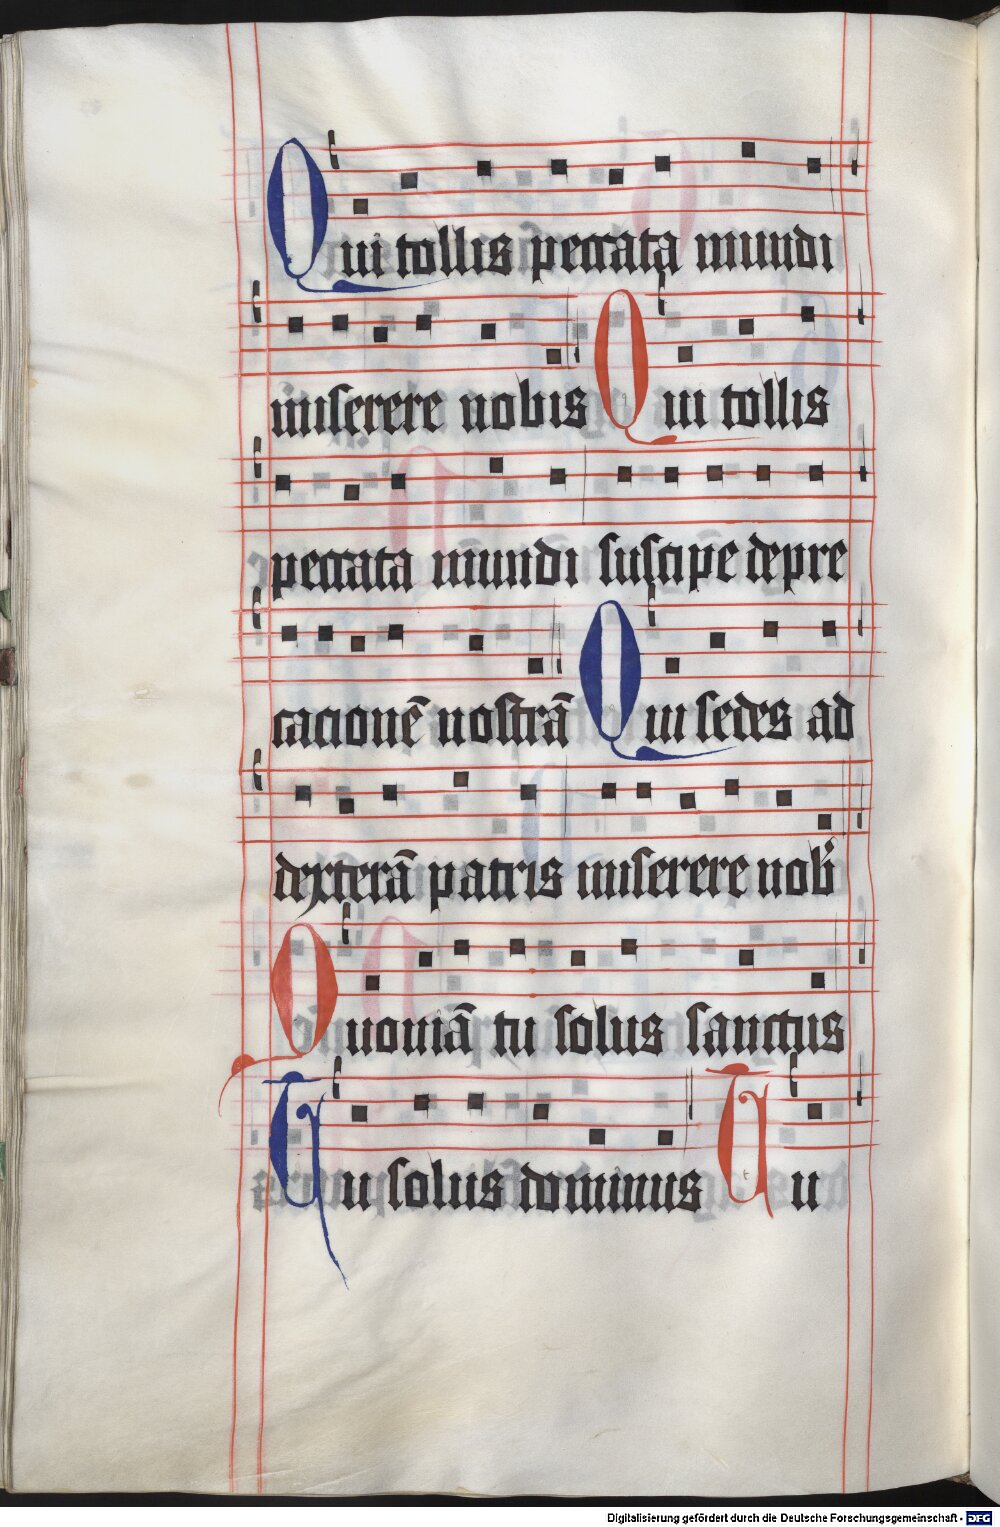 Qui tollis peccata mundi
miserere nobis Qui tollis
peccata mundi suscipe depre
cacionē nostrā Qui sedes ad
dexterā patris miserere nob̉
Quoniā tu solus sanctus
Tu solus dominus Tu
Digitalisierung gefördert durch die Deutsche Forschungsgemeinschaft - DFG